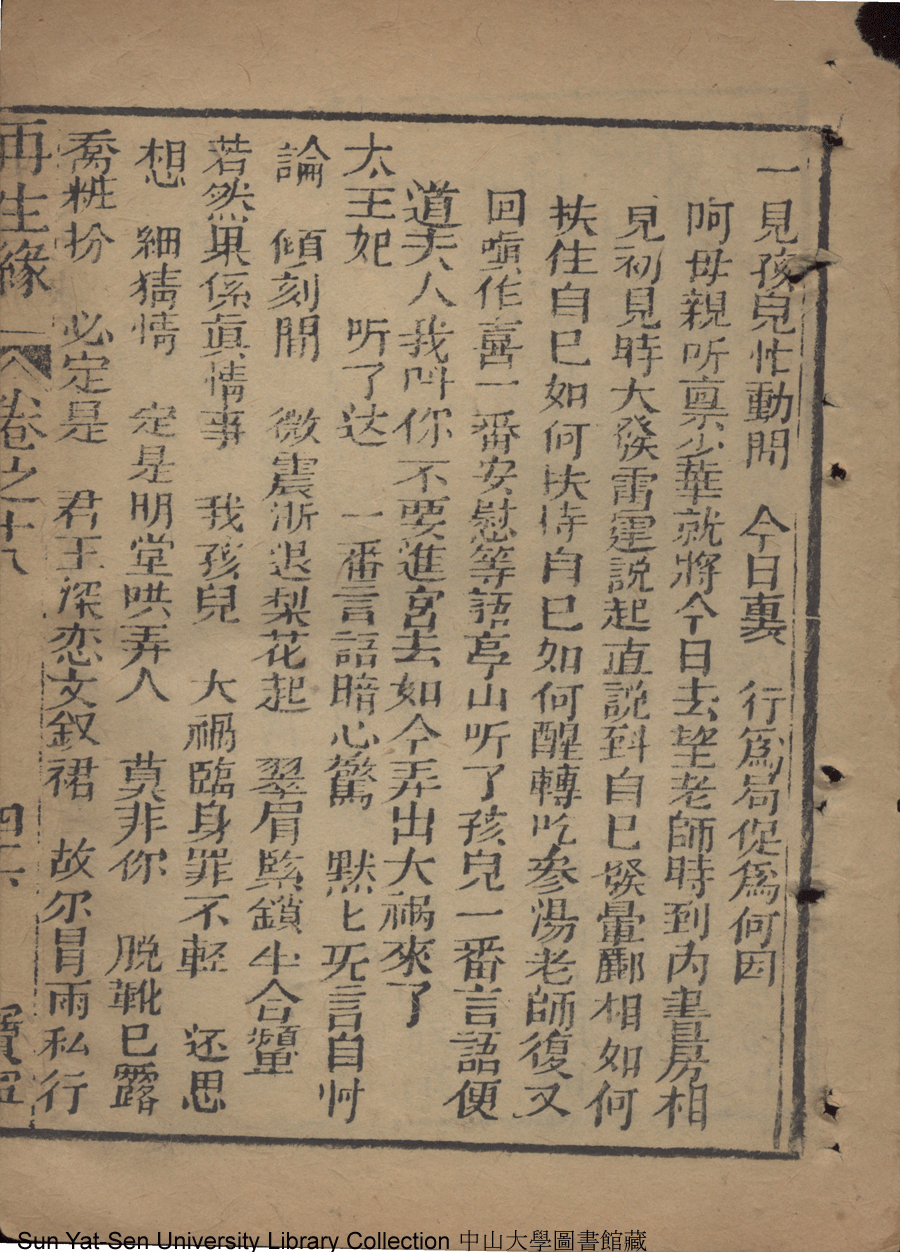 一見孩兒忙動問　今日裏　行爲局促爲何因
阿母親听禀少華就將今日去望老師時到內書房相
見初見時大發雷霆説起直説到自已發暈酈相如何
扶住自已如何扶侍自已如何醒轉吃參湯老師復又
回嗔作喜一番安慰等語亭山听了孩兒一番言語便
道夫人我叫你不要進宮去如今弄出大禍來了
太王妃　听了这　一番言語暗心驚　默匕旡言自忖
論　傾刻間　微震渐退梨花起　翠眉緊鎖半合顰
若然果係眞情事　我孩兒　大禍臨身罪不輕　还思
想　細猜情　定是明堂哄弄人　莫非你　脱靴已露
喬粧扮　必定是　君王深恋文釵裙　故尔冒雨私行
再生緣　卷之十八　四六
Sun Yat-Sen University Library Collection 中山大學圖書館藏